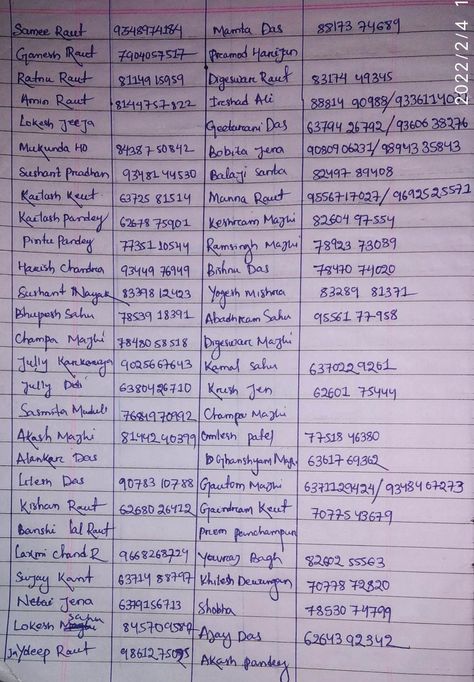 Samee Raut 9348974184 Mamta Das 88173 74689
Ganesh Raut 7904057517 Pramod Harijan
Ratnu Raut 8114915959 Digeswar Raut 83174 49345
Amin Raut 8144757822 Irshad Ali 88814 90988/
Lokesh Jeeja Geetarani Das 63794 26792/93606 38276
Mukunda HD 84387 50842 Bobita Jera 9080906231/98943 35843
Sushant Pradhan 93481 44530 Balaji Santa 82497 89408
Kailash Keut 63725 81514 Manna Raut 9556717027/9692525571
Kailash Pandey 62678 75901 Keshram Majhi 82604 97554
Pintu Pandey 77351 10544 Ramsingh Majhi 78923 73039
Harish Chandra 93449 76949 Bishnu Das 78470 74020
Sushant Nayak 83398 12423 Yogesh Mishra 83289 81371
Bhupesh Sahu 78539 18391 Abadhram Sahu 95561 77958
Champa Majhi 78480 58518 Digeswar Majhi
Jully 9025667643 Kamal Sahu 6370229261
Jully Devi 6380426710 Krush Jen 62601 75444
Sasmita Maduli 7684970992 Champa Majhi
Akash Majhi 8144240399 Omlesh patel 77518 46380
Alankar Das Ghanshyam 63617 69362
Litesh Das 90783 10788 Gautom Majhi 6371129424/9348407273
Kishan Raut 62680 26412 Gaindram Keut 70775 43679
Banshi lal Raut Prem panchampur
Laxmi chand R 9668268724 Youvraj Bagh 82602 55563
Sujay Kant 63714 88797 Khilesh Dewangan 70778 72820
Netai Jena 6379156713 Shobha 78530 74799
Lokesh sahu 8457049587 Ajay Das 62643 92342
Jaydeep Raut 98612 75095 Akash pandey
2022/2/4 1